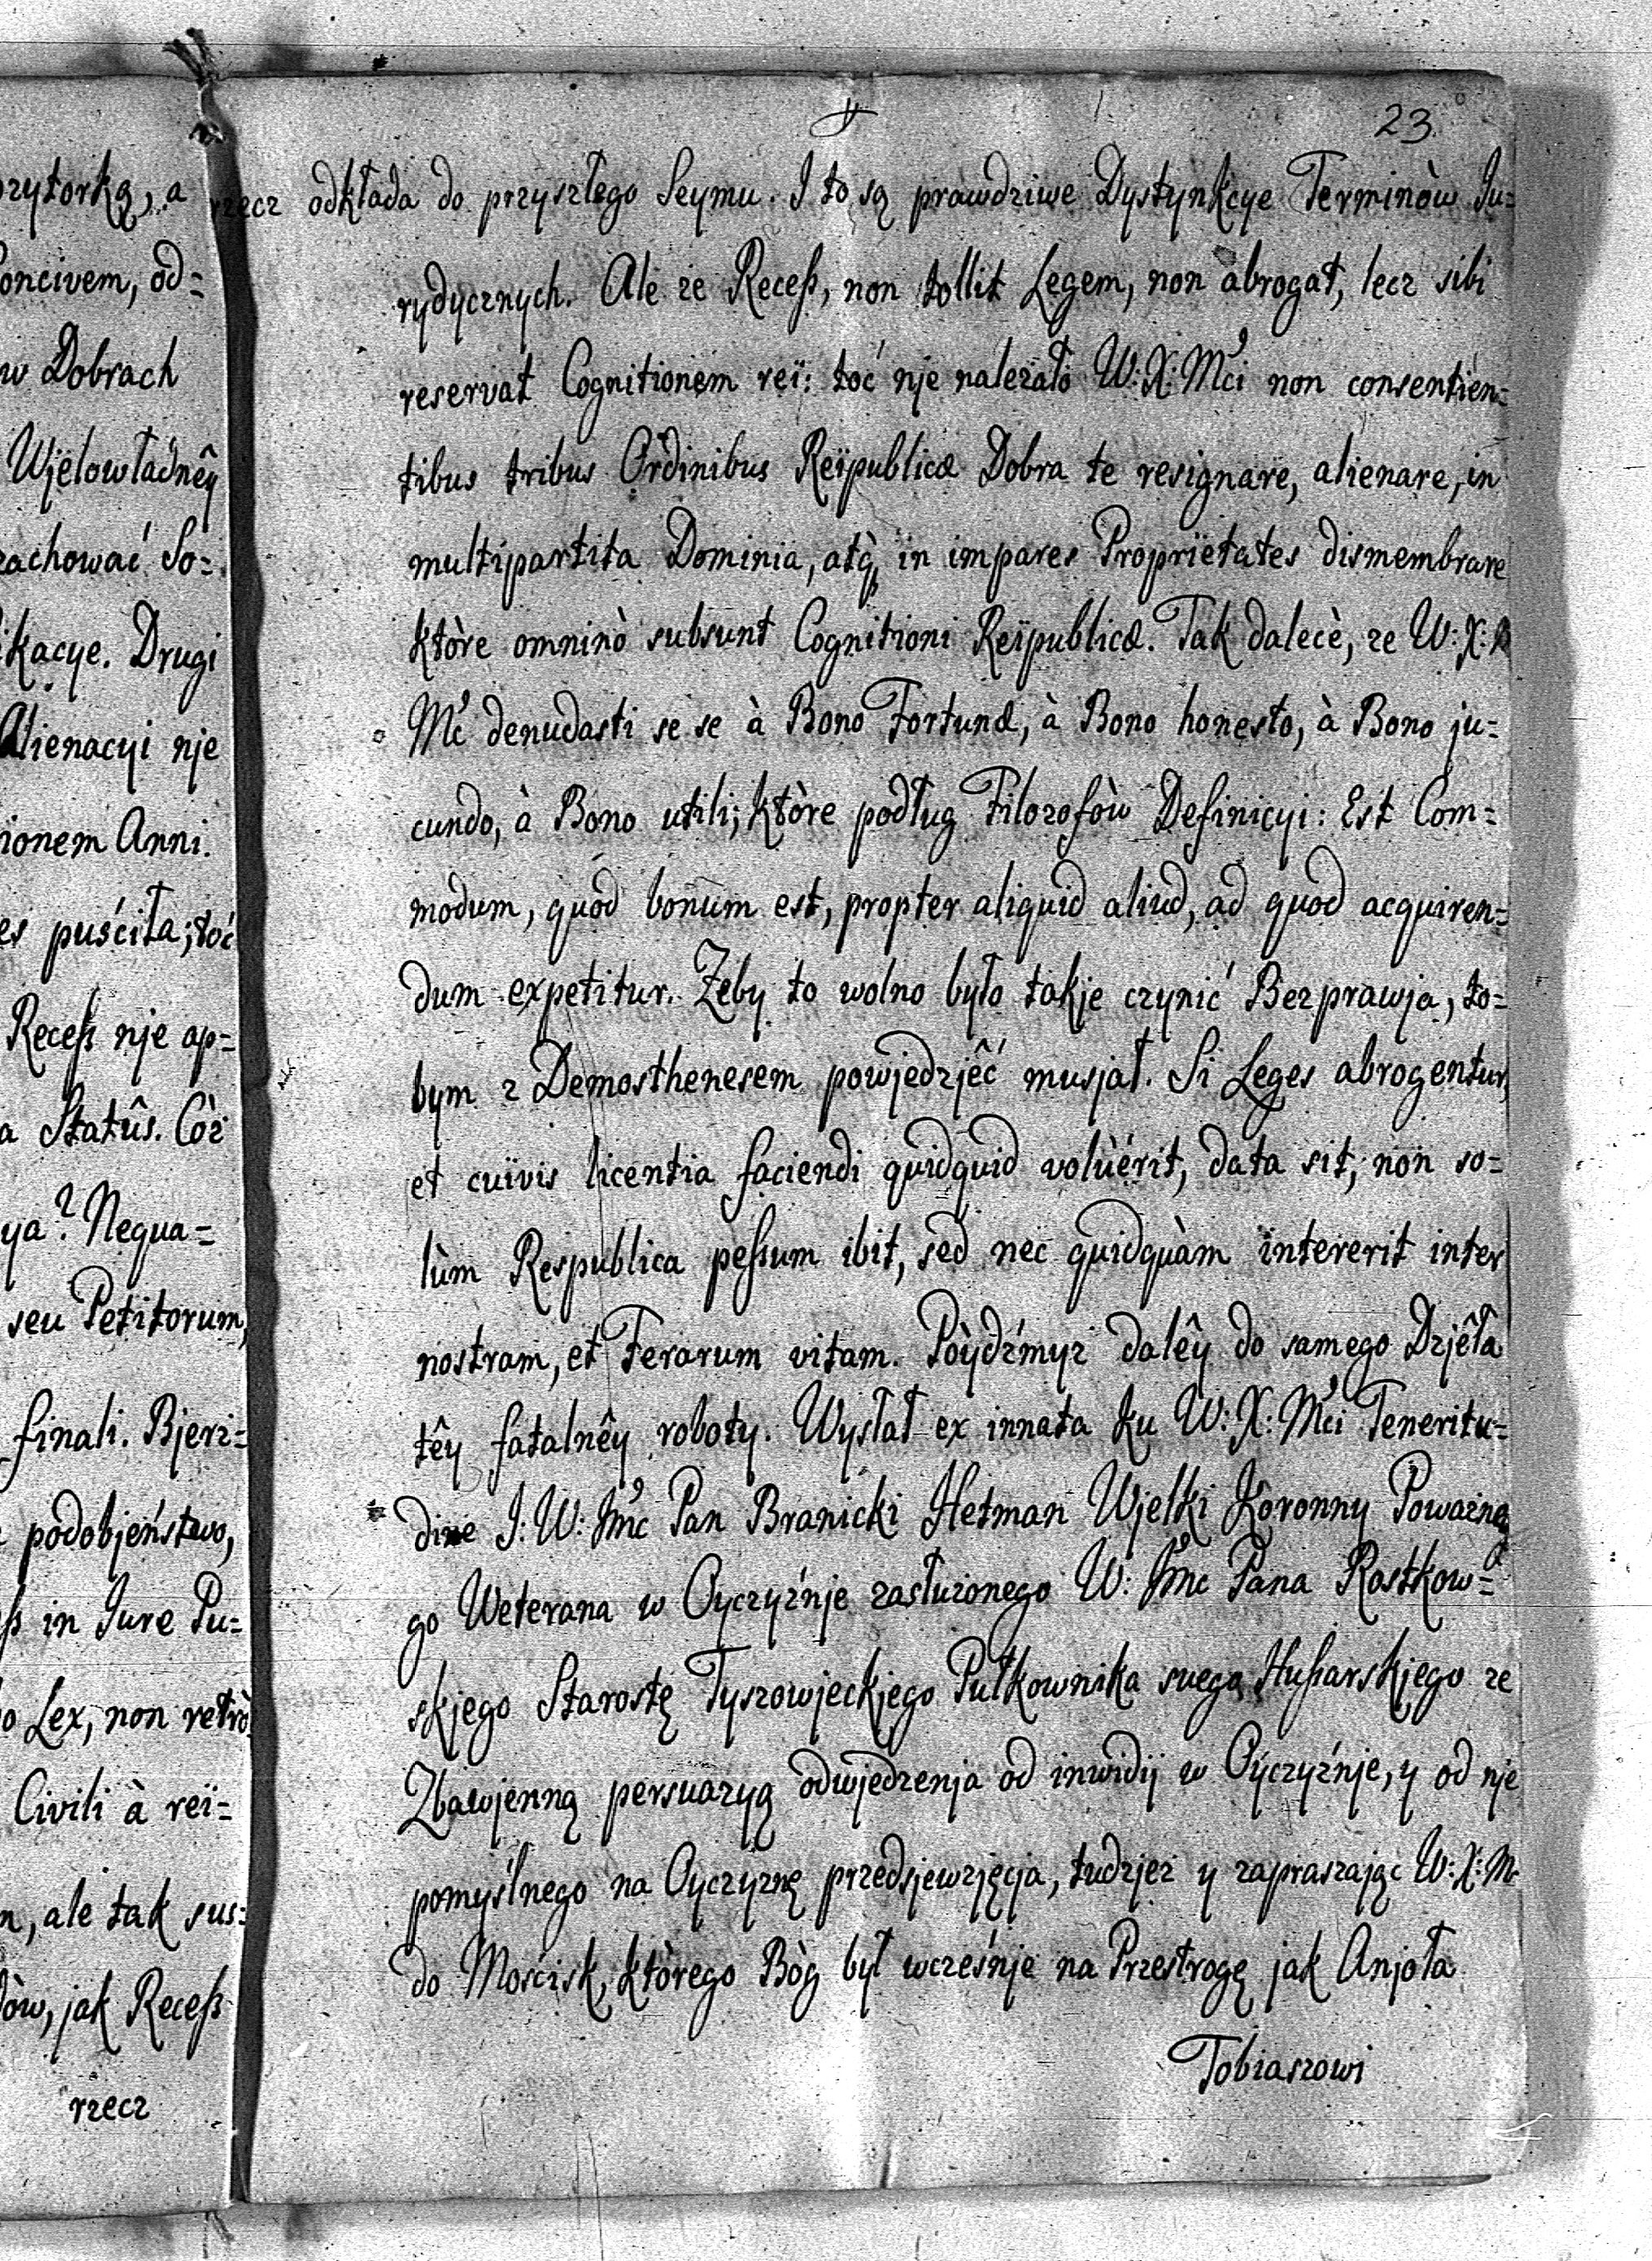 23
rzytorką, a
oncivem, od=
w Dobrach
Wjelowładnêy
zachować So=
ikacye. Drugi
Alienacyi nje
ionem Anni.
es puściła; toć
Recess nje ap=
a Statûs. Còż
ya? Nequa=
seu Petitorum,
finali. Bjerz=
podobjeństwo,
ss in Jure Pu=
o Lex, non retrò
Civili à reï=
n, ale tak sus=
dòw, jak Recess
rzecz
rzecz odkłada do przyszłego Seymu. I to są prawdziwe Dystynkcye Terminòw Ju=
rydycznych. Ale ze Recess, non tollit Legem, non abrogat, lecz sibi
reservat Cognitionem reï: toć nje nalezało W:X:Mći non consentien=
tibus tribus Ordinibus Reïpublicæ Dobra te resignare, alienare, in
multipartita Dominia, atq, in impares Proprietates dismembrare
ktòre omninò subsunt Cognitioni Reïpublicæ. Tak dalecè, ze W:X:
Mć denudasti se se à Bono Fortunæ, à Bono honesto, à Bono ju=
cundo, à Bono utili; ktòre podług Filozofòw Definicyi: Est Com=
modum, quod bonum est, propter aliquid aliud, ad quod acquiren=
dum expetitur. Zeby to wolno było takje czynić Bezprawja, to=
bym z Demosthenesem powjedzjêć musjał. Si Leges abrogentur,
et cuïvis licentia faciendi quidquid volüerit, data sit, non so=
lùm Respublica pessum ibit, sed nec quidquàm intererit inter
nostram, et Ferarum vitam. Pòydźmyz dalêy do samego Dzjêła
têy fatalnêy roboty. Wysłał ex innata ku W:X:Mći Teneritu=
dine J:W:Jmć Pan Branicki Hetman Wjelki Koronny Powazne
go Weterana w Oyczyźnje zasłuzonego W: Jmć Pana Rostkow=
skjego Starostę Tyszowjeckjego Pułkownika swego Hussarskjego ze
Zbawjenną perswazyą odwjedzenja od inwidij w Oyczyźnje, y od nje
pomyślnego na Oyczyznę przedsjewzjęcja, tudzjez y zapraszając W:X:Mć
do Mościsk, ktòrego Bòg był wcześnje na Przestrogę jak Anjoła
Tobiaszowi